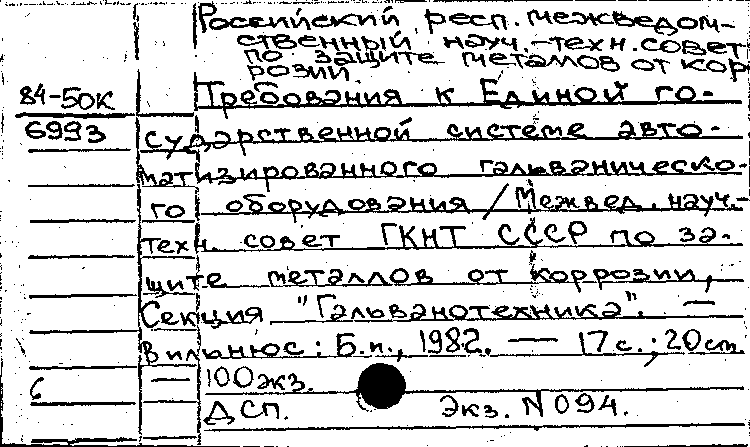 Российский респ. межведом-
ственный науч.-техн. совет
по защите металлов от кор
розии.
84-50к
Требования к Единой го-
6993
сударственной системе авто-
матизированного гальваническо-
го оборудования / Межвед. науч.-
техн. совет ГКНТ СССР по за-
щите металлов от коррозии,
Секция "Гальванотехника". —
Вильнюс: Б.и., 1982. — 17 с.; 20 см.
6 — 100 экз.
ДСП. Экз. N 094.